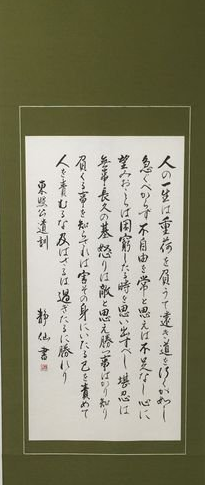 人の一生は重荷を負うて遠き道を行くが如し
急ぐべからず不自由を常と思えば不足なし心に
望みおこらば困窮したる時を思い出すべし堪忍は
無事長久の基怒りは敵と思え勝つ事ばかり知り
負くる事を知らざれば害その身にいたる己を責めて
人を責むるな及ばざるは過ぎたるに勝れり
東照公遺訓
静仙書